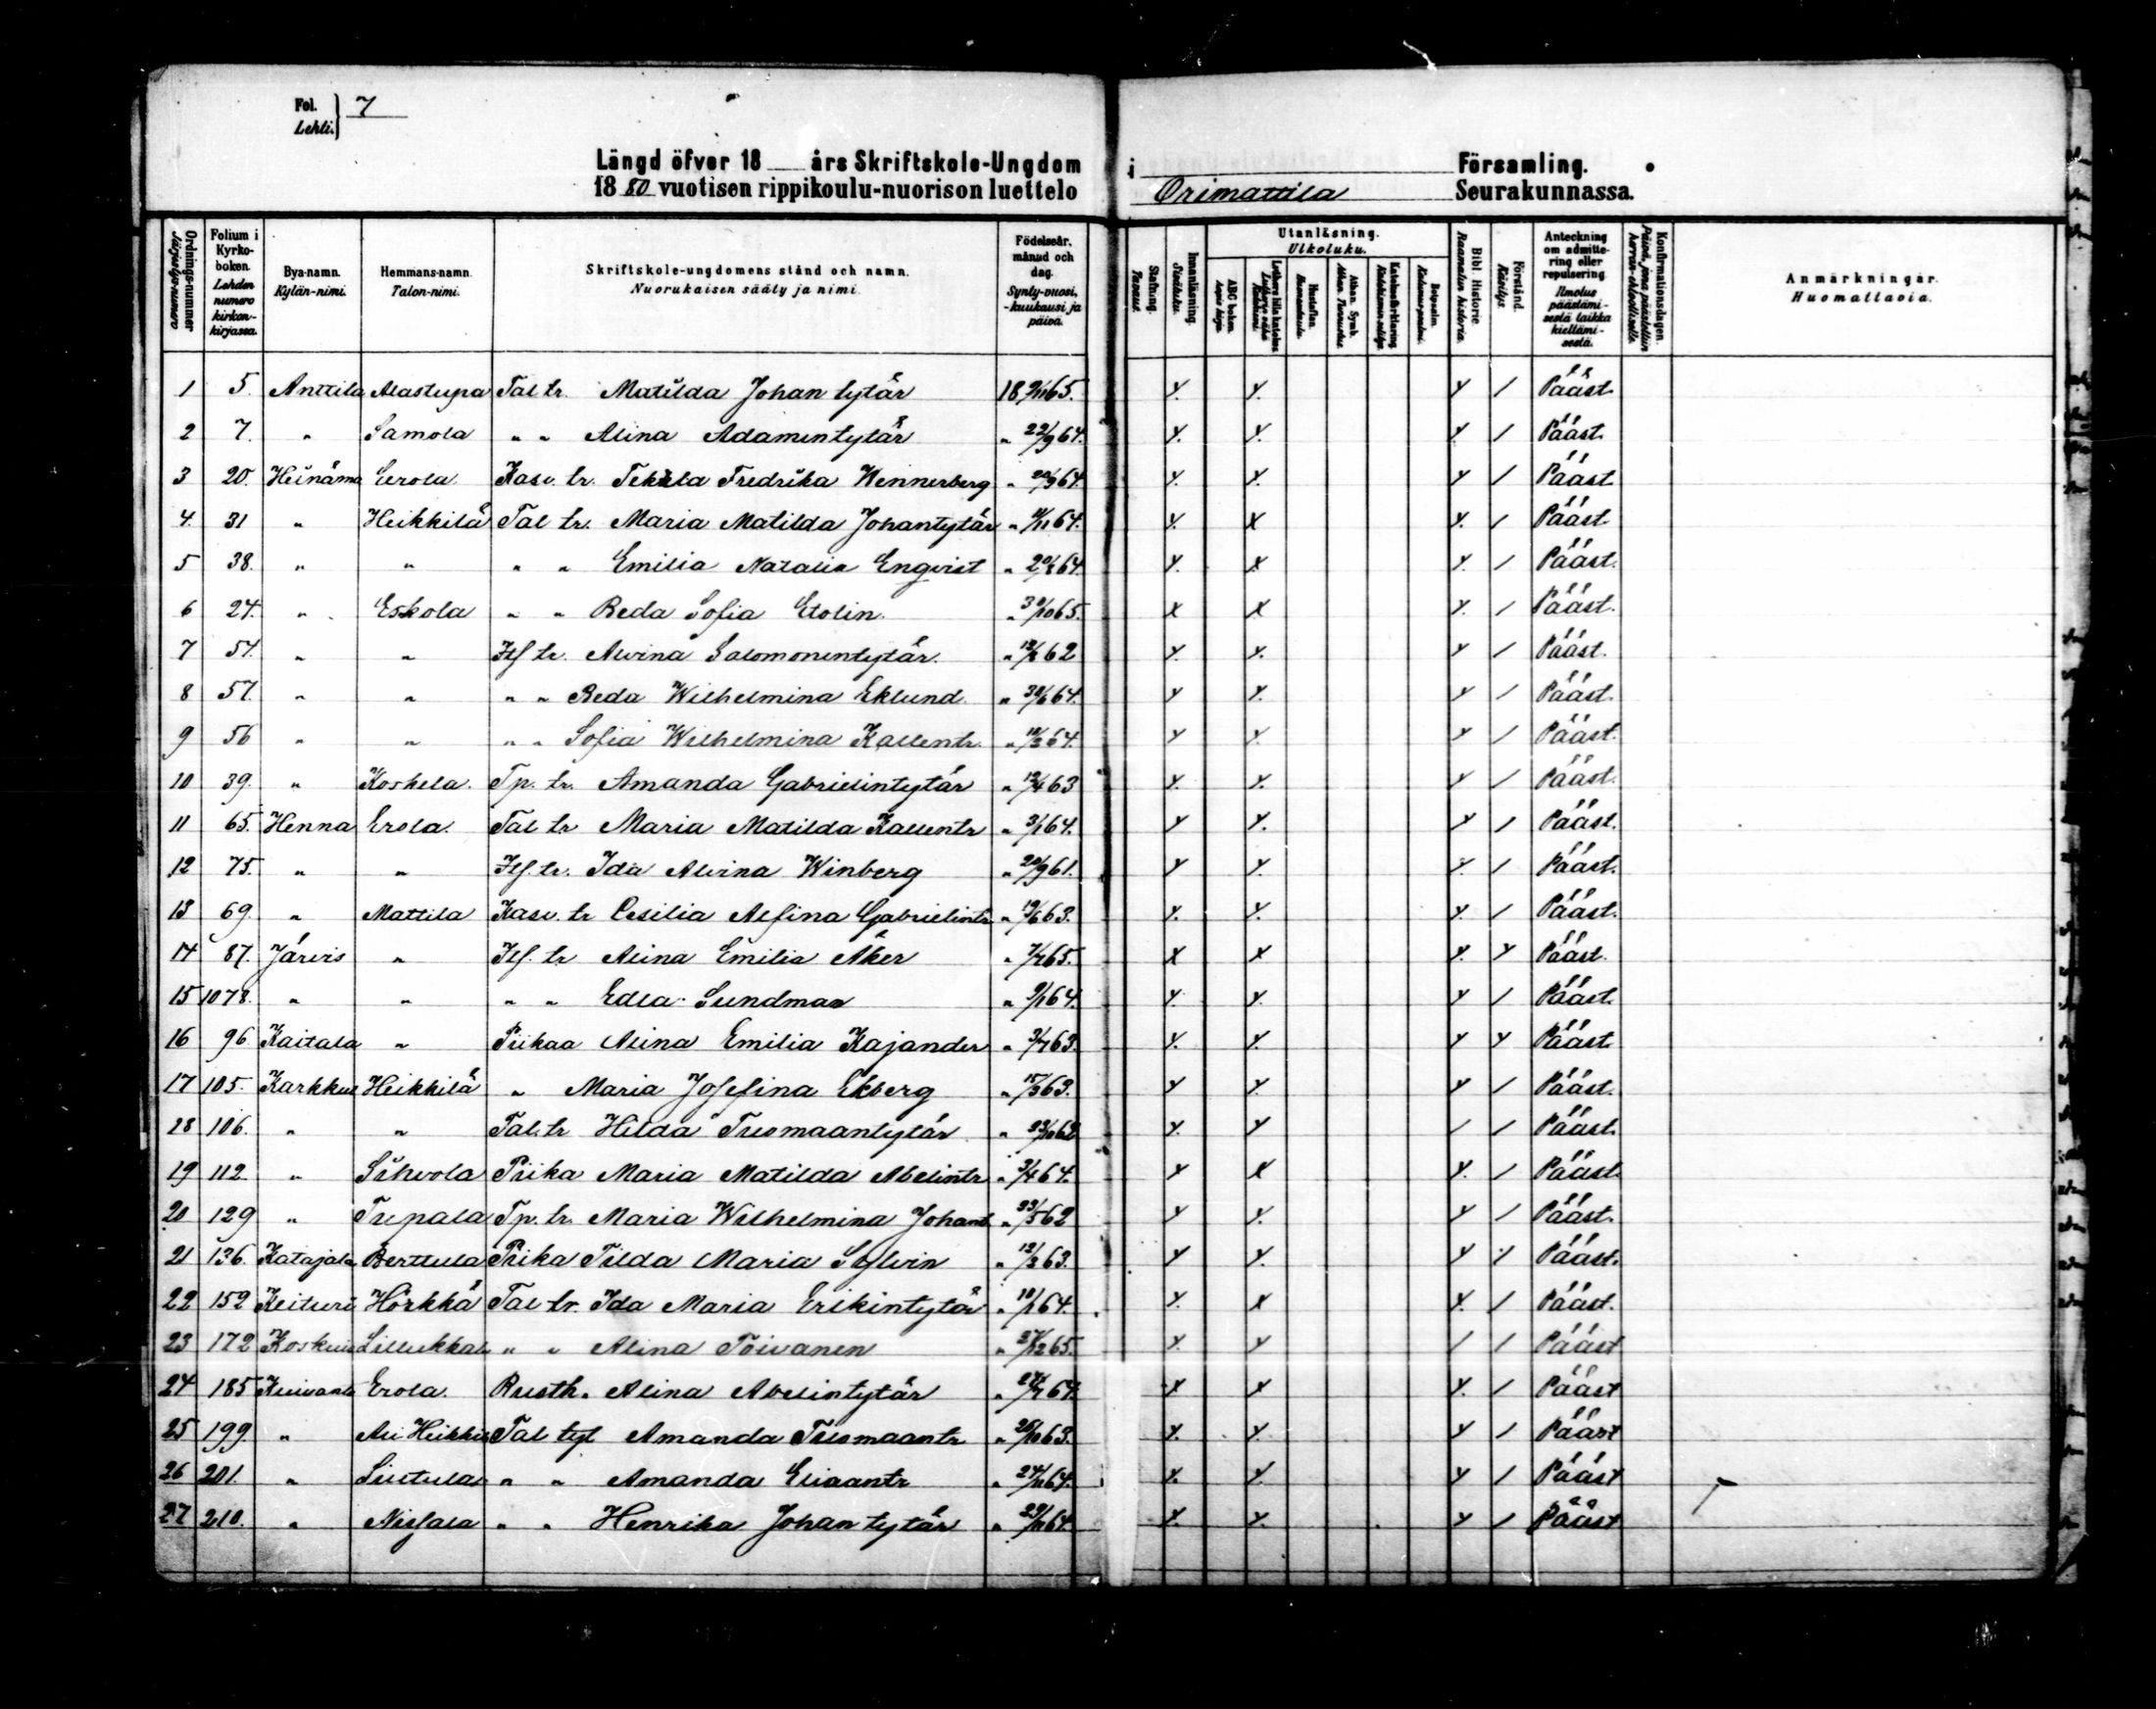 Fol. Lehti. } 7
Längd öfver 18 ___ års Skriftskole-Ungdom i ___ Församling.
1880 vuotisen rippikoulu-nuorison luettelo Orimattila Seurakunnassa.
Ordnings-nummer Järjestys-numero | Folium i Kyrkoboken. Lehden numero kirkonkirjassa. | Bya-namn. Kylän-nimi. | Hemmans-namn. Talon-nimi. | Skriftskole-ungdomens stånd och namn. Nuorukaisen sääty ja nimi. | Födelseår, månud och dag. Synty-vuosi, -kuukausi ja päivä. | Stafning. Tavaus. | Innanläsning. Sisäluku. | Utanläsning. Ulkoluku. | ABC boken. Aapis kirja. | Luthers lilla katekes | Hustaflan. Huoneentaulu. | Athan. Symb. Athan. Tunnustus. | Katekesförklaring. Katekismuksen selitys. | Botpsalm. Katumus-psalmi. | Bibl. Historie. Raamatun historia. | Förstånd. Käsitys. | Anteckning om admittering eller repulsering. Ilmoitus päästämisestä taikka kieltämisestä. | Konfirmationsdagen. Päivä, jona päästettiin herran-ehtoolliselle. | Anmärkningar. Huomattavia.
1 5. Anttila Alastupa Tal tr. Matilda Johan tytär 18 9/11 65. y. y. y / Pääst.
2 7. " Samola " " Alina Adamintytär " 22/9 64. y. y. y / Pääst.
3 20. Heinäma Eerola Kasv. tr. Tekla Fredrika Wennerberg " 20/9 64. y. y. y / Pääst
4. 31 " Heikkilä Tal tr. Maria Matilda Johantytär " /11 64. y. x y. / Pääst.
5 38. " " " " Emilia Natalia Enqvist " 64. y. x y. / Pääst.
6 24. " Eskola " " Beda Sofia Etolin. " 30/10 65. x x y. / Pääst.
7 54. " " Itf tr. Alvina Salomonintytär. " 62 y. y. y / Pääst.
8 57. " " " " Beda Wilhelmina Eklund. " 64. y y. y / Pääst.
9 56 " " " " Sofia Wilhelmina Kallentr. " 64. y y. y / Pääst.
10 39. " Koskela. Tp. tr. Amanda Gabrielintytär " 12/4 63 y. y. y / Pääst.
11 65. Henna Erola. Tal tr Maria Matilda Kallentr " 3/1 64. y y. y / Pääst.
12 75. " " Itf. tr. Ida Alvina Winberg " 20/9 61. y y. y. / Pääst.
13 69. " Mattila Kasv. tr Cesilia Alfina Gabrielintr " 19/6 63. y. y. y. / Pääst.
14 87. Järvis " Itf. tr Alina Emilia Åker " 65. x x y. y Pääst.
15 1078. " " " " Edla Sundman " 9/1 64. y. y. y / Pääst.
16 96. Kaitala " Piikaa Alina Emilia Kajander " 3/7 63. y. y. y y Pääst
17 105. Karkkul Heikkilä " Maria Josefina Ekberg " 15/3 63. y y. y / Pääst.
18 106. " " Tal. tr Hilda Tuomaantytär " 23/10 62 y. y / / Pääst.
19 112. " Sihvola Piika Maria Matilda Abelintr " 3/4 64. y x y. / Pääst.
20 129 " Tupala Tp. tr. Maria Wilhelmina Johant " 23/5 62 y y. y / Pääst.
21 136. Katajala Berttula Piika Tilda Maria Sylvin " 12/3 63. y y. y y Pääst.
22 152 Keituri Hörkkä Tal tr. Ida Maria Erikintytär " 10/1 64. y. x y. / Pääst.
23 172 Koskus Lillukkal " " Alina Toivanen " 27/12 65. y. y / / Pääst
24 185 Kuivanto Erola. Rusth. Alina Abelintytär " 64. x x y. / Pääst
25 199. " Ali Heikkilä Tal tyt Amanda Tuomaantr " 25/10 63. y. y. y / Pääst
26 201. " Siutula " " Amanda Eliaantr " 24/11 64. y. y. y / Pääst
27 210. " Nissala " " Henrika Johan tytär " 29/11 64. y. y. y / Pääst